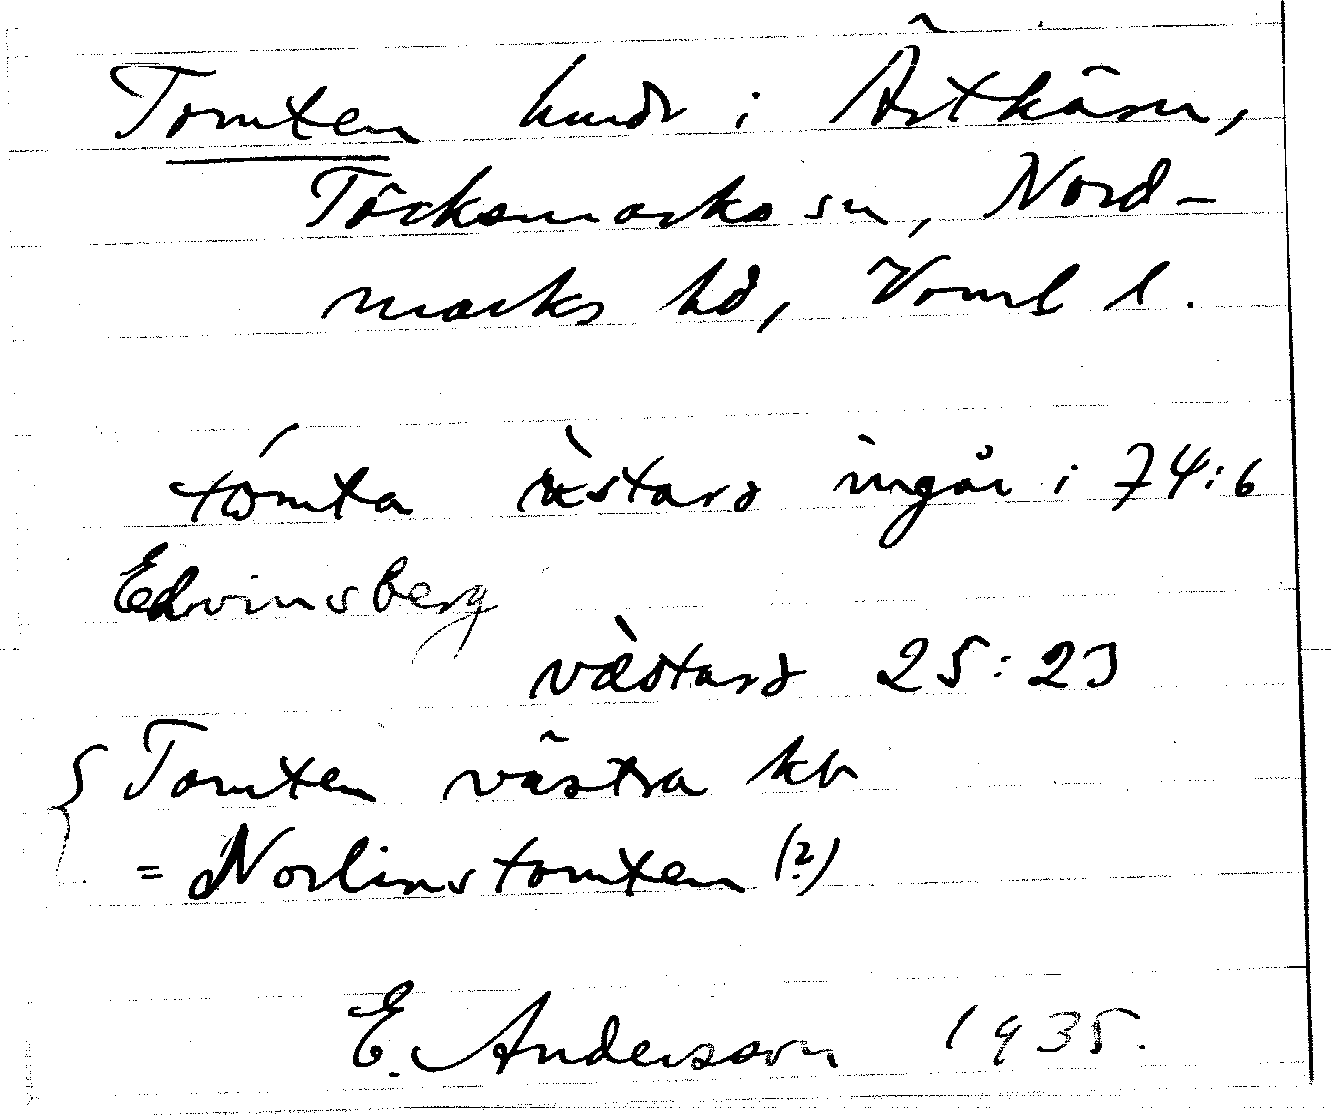 Tomten hmdr i Årtkärn,
Töcksmarks sn, Nord-
marks hd, Vrml l.
tómta vàstard ingår i 74:6
Edvinsberg
vàstard 25:23
Tomten västra kv
= Norlinstomten (?)
E. Andersson 1935.